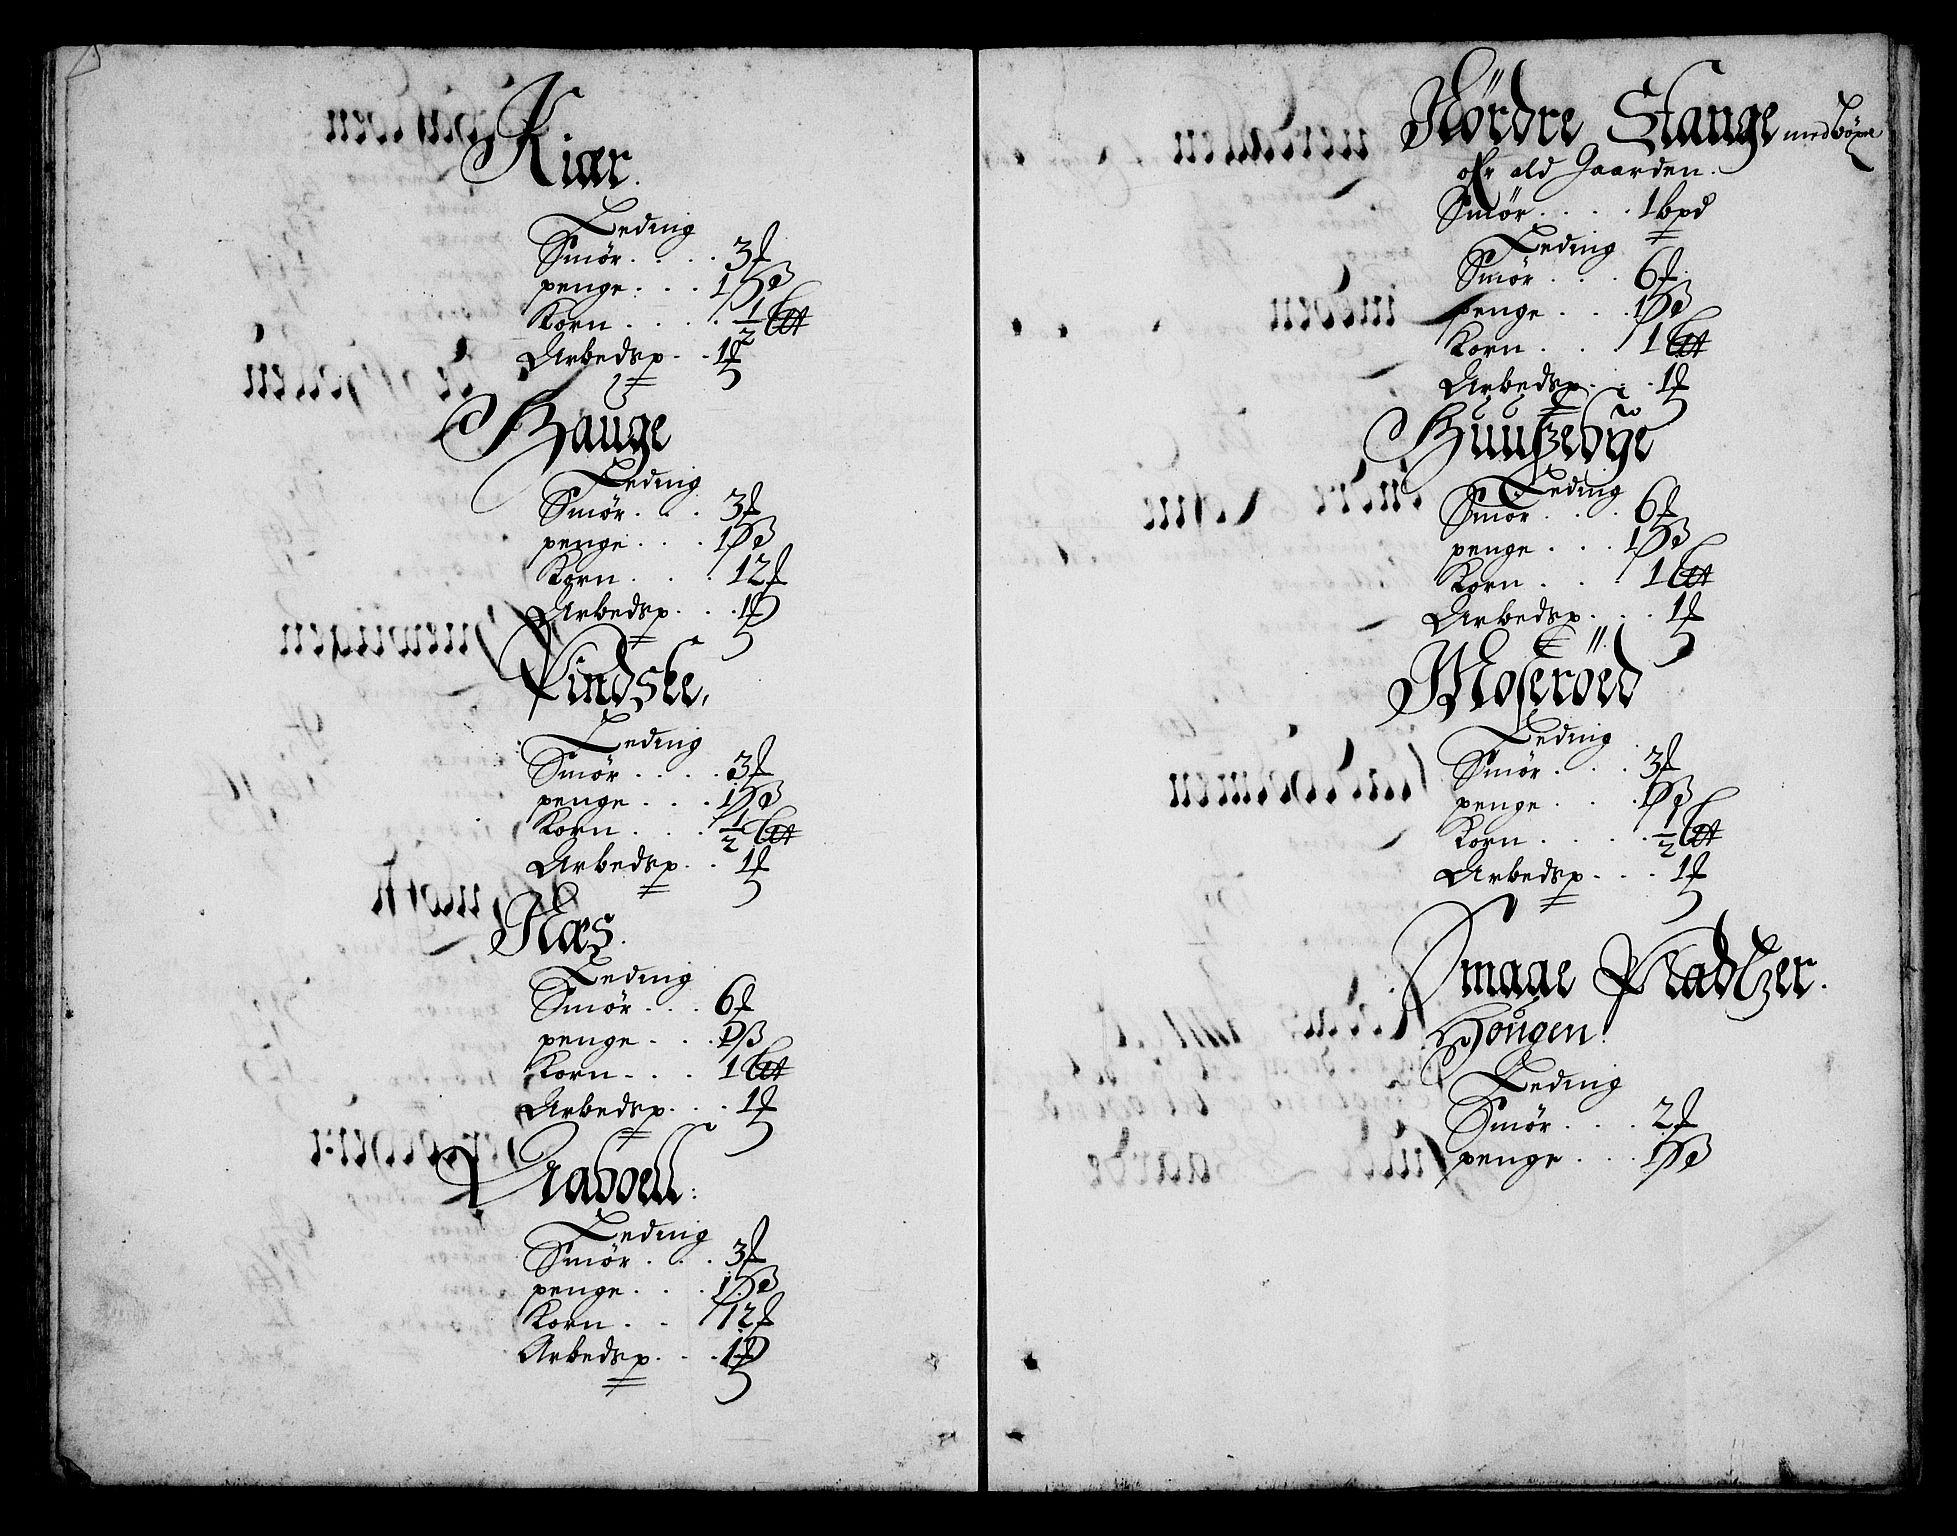 Kiær.
Leding
Smör 3 ʄ
penge 1 ß
Korn ½ Sæt
Arbedsp 1 ʄ
Hauge
Leding
Smör 3 ʄ
penge 1 ß
Korn 12 ʄ
Arbedsp 1 ʄ
Pindske,
Leding
Smör 3 ʄ
penge 1 ß
Korn ½ Sæt
Arbedsp 1 ʄ
Næs.
Leding
Smör 6 ʄ
penge ß
Korn 1 Sæt
Arbedsp 1 ʄ
Leding
Smör 3 ʄ
penge 1 ß
Korn 12 ʄ
Arbedsp 1 ʄ
Nördre Stange med
ald Gaarden.
Smör 1 bpd
Leding
Smör 6 ʄ
penge 1 ß
Korn 1 Sæt
Arbedsp 1 ʄ
Huußebÿe
Leding
Smör 6 ʄ
penge 1 ß
Korn 1 Sæt
Arbedsp 1 ʄ
Moseröed
Leding
Smör 3 ʄ
penge 1 ß
Korn ½ Sæt
Arbedsp 1 ʄ
Smaae Pladtzer.
Hougen
Leding
Smör 2 ʄ
penge 1 ß